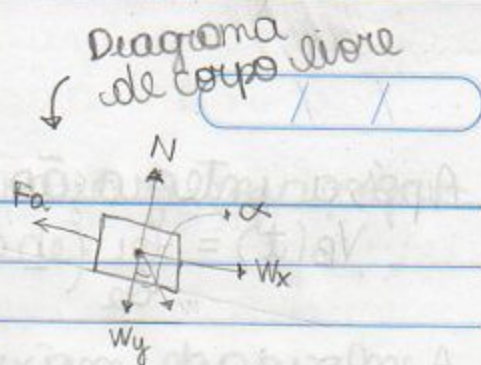 Diagrama
de corpo livre
/ /
N
Fa
α
Wx
Wy